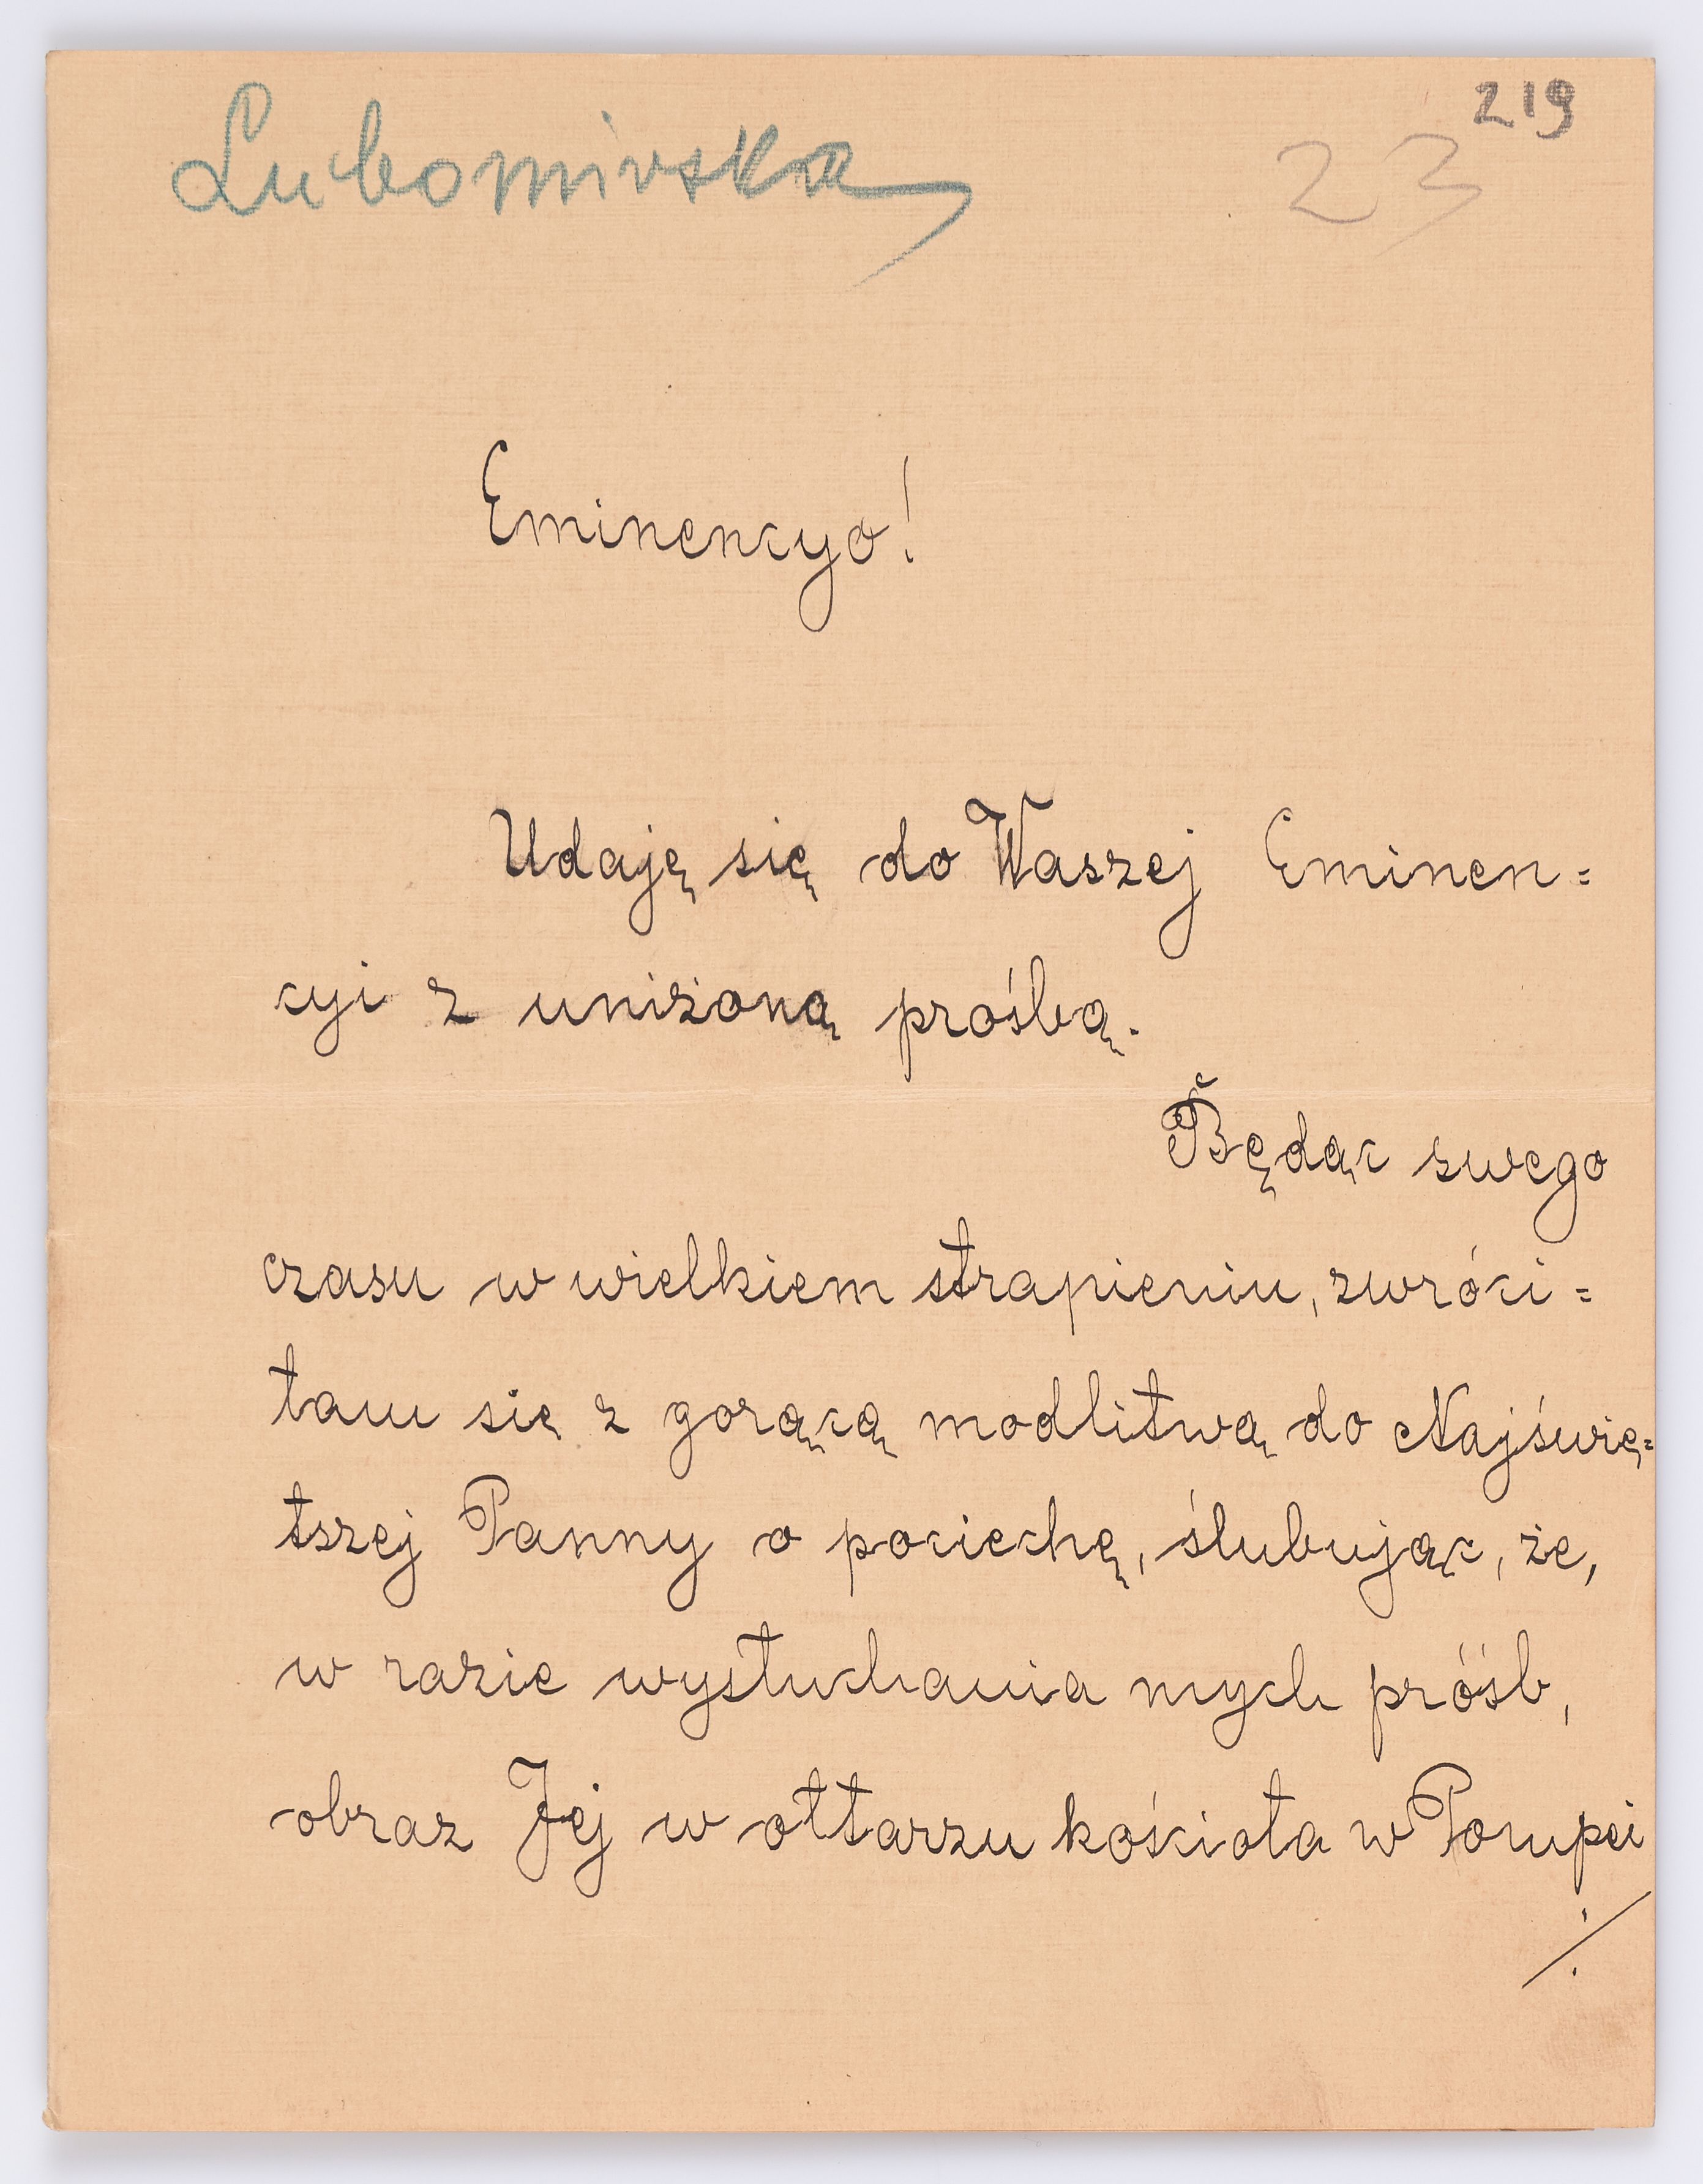 Lubomirska
219
23
Eminencyo!
Udaję się do Waszej Eminen=
cyi z uniżoną prośbą.
Będąc swego
czasu w wielkiem strapieniu, zwróci=
łam się z gorącą modlitwą do Najświę=
tszej Panny o pociechę, ślubując, że,
w razie wysłuchania mych próśb,
obraz Jej w ołtarzu kościoła w Pompei
./.